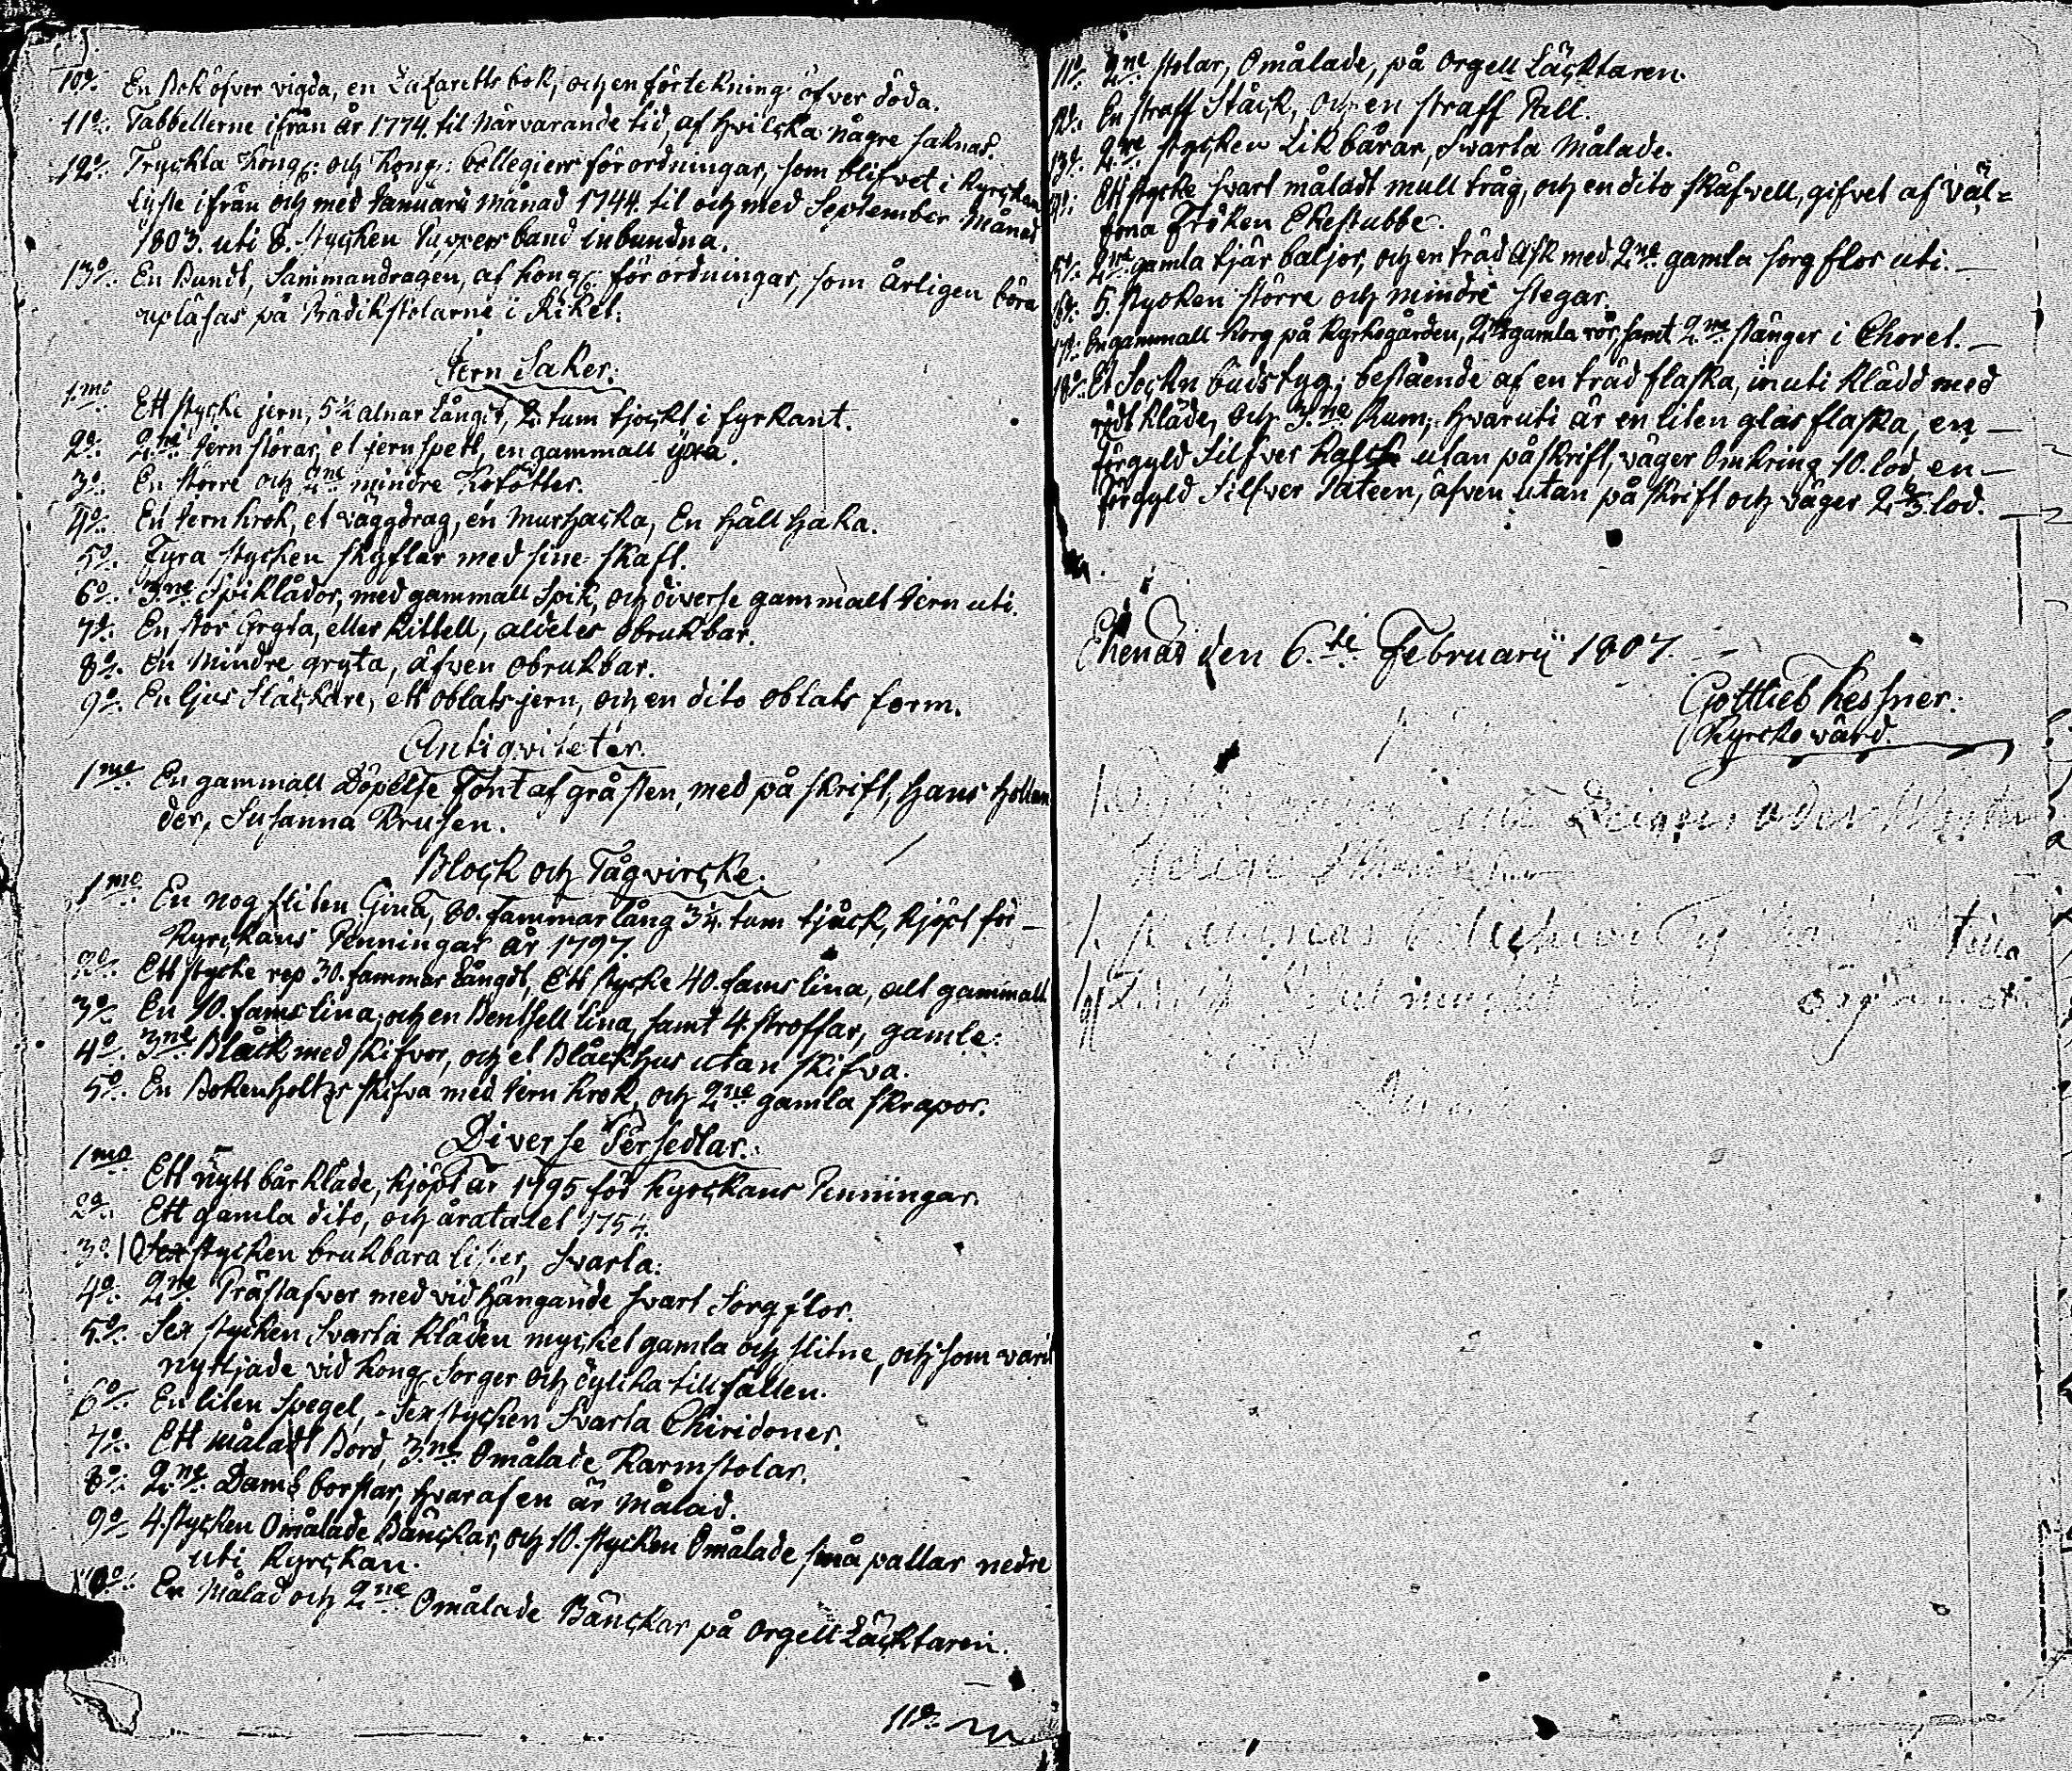 10o: En Bok öfver vigda, en Lazaretts bok, och en förtekning öfver döda.
11o: Tabbellerne ifrån år 1774. til närvarande tid, af hvilcka någre saknas.
12o: Tryckta Kongl: och Kongl: Collegiers förordningar, som blifvet i Kyrckan
lyste ifrån och med Januarii månad 1744. til och med September Månad
1803. uti 8. stycken Pappers band inbundna.
13o: En Bundt, Sammandragen, af Kongl: förordningar, som årligen böra
upläsas på Prädikstolarne i Riket.
Jern Saker.
1mo Ett stycke jern, 5½ alnar långt, 2. tum tjockt i fyrkant.
2o: 2ne jern störar, et jernspett, en gammall yxa.
3o: En större och 2ne mindre Kofötter.
4o: En Jern krok, et väggdrag, en murhacka, En håll haka.
5o: Fyra stycken skyflar med sine skaft.
6o: 3ne Spiklådor, med gammall Spik, och diverse gammalt Jern uti.
7o: En stor Gryta, eller kittell, aldeles obrukbar.
8o: En Mindre gryta, äfven obrukbar.
9o: En ljus Släckare, ett oblats jern, och en dito oblats form.
Antiqviteter.
1mo En gammall Döpelse Font af gråsten, med påskrift, Hans Hollen
der, Susanna Krusen.
Block och Tågvircke.
1mo En nog sliten Gina, 80. fammar lång 3¼. tum tjåck, kjöpt för
Kyrckans Penningar år 1797.
2o: Ett stycke rep 30. fammar långt, Ett stycke 40. fams lina, alt gammalt
3o: En 10. fams lina, och en Bentsell lina, samt 4. stroffar, gamle.
4o: 3ne Blåck med skifvor, och et Blåckhus utan skifva.
5o: En Bokenholtzs skifva med Jern krok, och 2ne gamla skrapor.
Diverse Persedlar.
1mo Ett nytt bårkläde, kjöpt år 1795 för Kyrckans Penningar.
2o: Ett gamla dito, och åratalet 1754.
3o: 10 sex stycken brukbara lister, svarta.
4o: 2ne Prästafver med vidhängande svart Sorgflor.
5o: Sex stycken Svarta kläden mycket gamla och slitne, och som varit
nyttjade vid Kongl Sorger och dylika tillfällen.
6o: En liten Spegel, Sex stycken Svarta Chiridoner.
7o: Ett måladt Bord, 3ne Omålade Karmstolar.
8o: 2ne Dam borstar, hvaraf en är Målad.
9o: 4. stycken Omålade Bänckar, och 10. stycken Omålade små pallar nedre
uti Kyrckan.
10o: En Målad och 2ne Omålade Bänckar på Orgell Läcktaren.
11o:
11o 2ne stolar, Omålade, på Orgell Läcktaren.
12o: En straff Ståck, och en straff Pall.
13o: 2ne stycken Likbårar, Svarta Målade.
14o: Ett stycke svart måladt mull tråg, och en dito skåfvell, gifvet af Väl=
borna Fröken Ekestubbe.
15o: 2ne gamla tjär baljor, och en träd Ask med 2ne gamla sorgflor uti.
16o: 5. stycken större och mindre stegar.
17o: En gammall korg på Kyrkogården, 2ne gamla rör, samt 2ne stänger i Choret.
18o: Et Sockn budstyg; bestående af en träd flaska, inuti klädd med
rödt kläde, och 3ne Rum; hvaruti är en liten glas flaska, en
förgyld Silfver Kalck utan påskrift, väger Omkring 10. lod, en
förgyld Silfver Pateen, äfven utan påskrift och väger 2⅔ lod.
Ekenäs den 6te Februarii 1807.
Gottlieb Kessner.
Kyrcko värd.